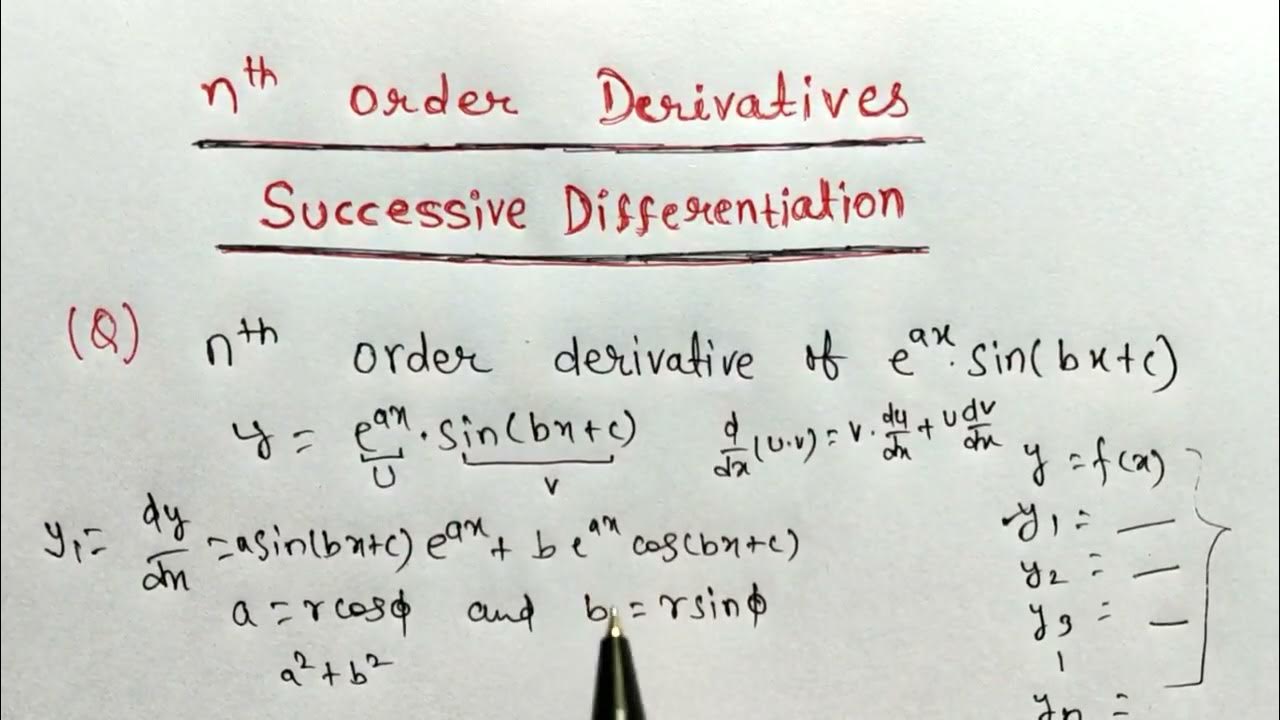 nth order Derivatives
Successive Differentiation
(Q) nth order derivative of e^ax · sin(bx+c)
y = e^ax · sin(bx+c)
U v
d/dx (u·v) = v · du/dx + u dv/dx
y1 = dy/dx = a sin(bx+c) e^ax + b e^ax cos(bx+c)
a = r cos ϕ and b = r sin ϕ
a² + b²
y = f(x)
y1 = —
y2 = —
y3 = —
yn =